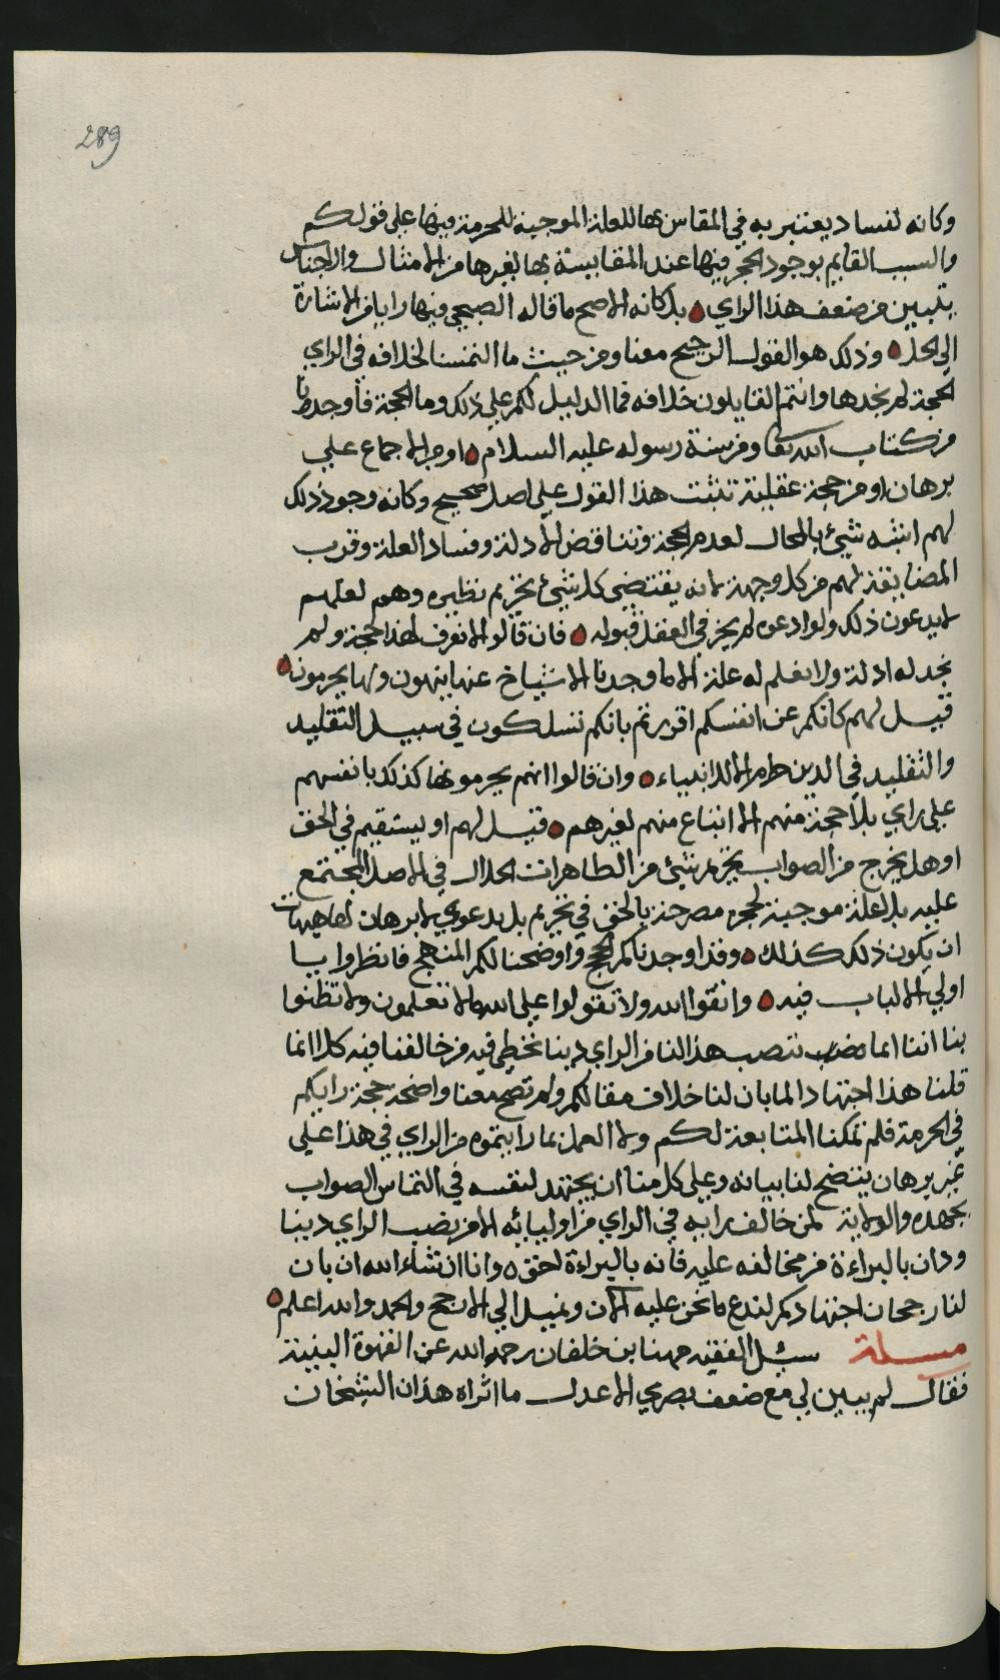 289
وكانه لفساد يعتبر به في المقاس بها للعلة الموجبة للحرمة فيها علي قولكم
والسبب القايم بوجود الحجر فيها عند المقايسة بها لغيرها من الامثال والاجناس
يتبين من ضعف هذا الراي بل كانه الاصح ما قاله الصبحي فيها رايا في الاشارة
الي الحل وذلك هو القول الرجيح معنا ومن حيث ما التمسنا لخلافه في الراي
الحجة لم نجدها وانتم القايلون خلافه فما الدليل لكم علي ذلك وما الحجة فاوجدونا
من كتاب الله تعا ومن سنة رسوله عليه السلام او من الاجماع علي
برهان او من حجة عقلية تثبت هذا القول علي اصل صحيح وكانه وجود ذلك
لهم اشبه شيئ بالمحال لعدم الحجة وتناقض الادلة وفساد العلة وقرب
المضايقة لهم من كل وجهة لانه يقتضي كل شيئ تحريم نظيره وهم لعلهم
لا يدعون ذلك ولو ادعوه لم يجز في العقل قبوله فان قالوا لا نعرف لهذا حجة ولم
نجد له ادلة ولا نعلم له علة الا ما وجدنا الاشياخ عنها ينهون ولها يحرمون
قيل لهم كانكم عن انفسكم اقررتم بانكم تسلكون في سبيل التقليد
والتقليد في الدين حرام الا للانبياء وان قالوا انهم يحرمونها كذلك بانفسهم
علي راي بلا حجة منهم الا اتباع منهم لغيرهم قيل لهم او يستقيم في الحق
او هل يخرج من الصواب تحريم شيئ من الطاهرات الحلال في الاصل المجتمع
عليه بلا علة موجبة لحجره مصرحة بالحق في تحريم بل بدعوي لا برهان لها هيهات
ان يكون ذلك كذلك وقد اوجدناكم الحجج واوضحنا لكم المنهج فانظروا يا
اولي الالباب فيه واتقوا الله ولا تقولوا علي الله ما لا تعلمون ولا تظنوا
بنا اننا انما ننصب هذا لنا من الراي دينا نخطي فيه من خالفنا فيه كلا انما
قلنا هذا اجتهادا لما بان لنا خلاف مقالكم ولم تصح معنا واضحة حجة رايكم
في الحرمة فلم تمكنا المتابعة لكم ولا العمل بما رايتموه من الراي في هذا علي
غير برهان يتضح لنا بيانه وعلي كل منا ان يجتهد لنفسه في التماس الصواب
بجهده والولاية لمن خالف رايه في الراي من اوليائه الا من نصب الراي دينا
ودان بالبراءة من مخالفه عليه فانه بالبراءة لحق وانا ان شاء الله ان بان
لنا رجحان اجتهادكم لندع ما نحن عليه الان ونميل الي الارجح والحمد والله اعلم
مسئلة سئل الفقيه مهنا بن خلفان رحمه الله عن القهوة البنية
فقال لم يبين لي مع ضعف بصري الاعدل ما اثراه هذان الشيخان